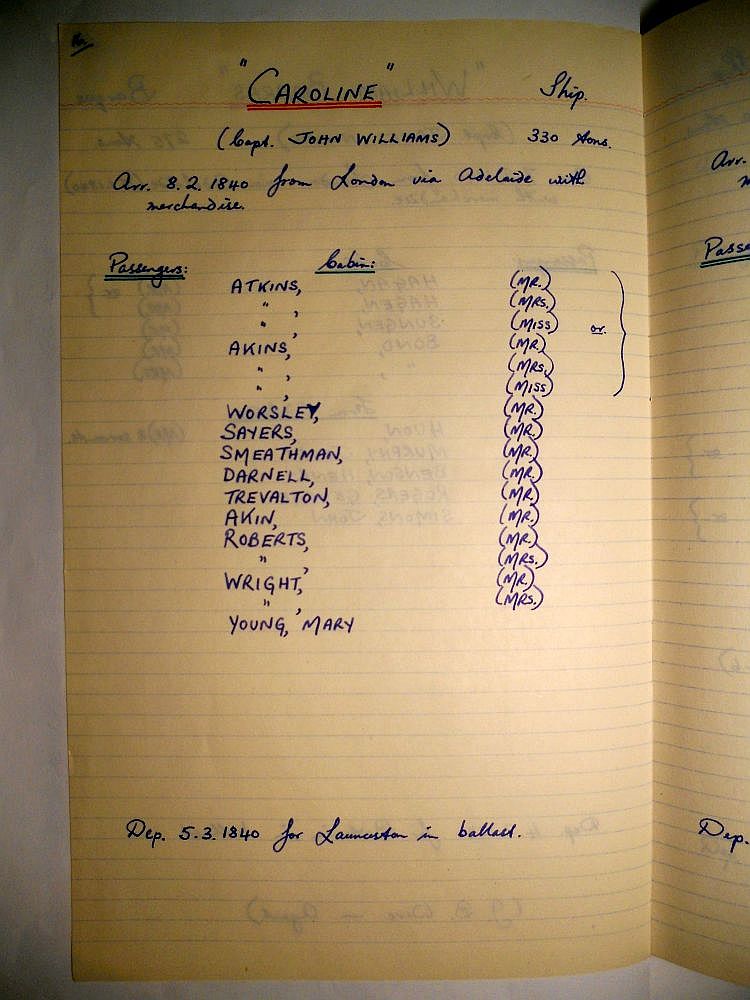 "CAROLINE" Ship.
(Capt. JOHN WILLIAMS) 330 tons.
Arr. 8.2.1840 from London via Adelaide with
merchandise.
Passengers: Cabin:
ATKINS, (MR.)
" , (MRS.)
" , (MISS) or.
AKINS, (MR.)
" , (MRS.)
" , (MISS)
WORSLEY, (MR.)
SAYERS, (MR.)
SMEATHMAN, (MR.)
DARNELL, (MR.)
TREVALTON, (MR.)
AKIN, (MR.)
ROBERTS, (MR.)
" , (MRS.)
WRIGHT, (MR.)
" , (MRS.)
YOUNG, MARY
Dep. 5.3.1840 for Launceston in ballast.
Arr.
Passe
Dep.